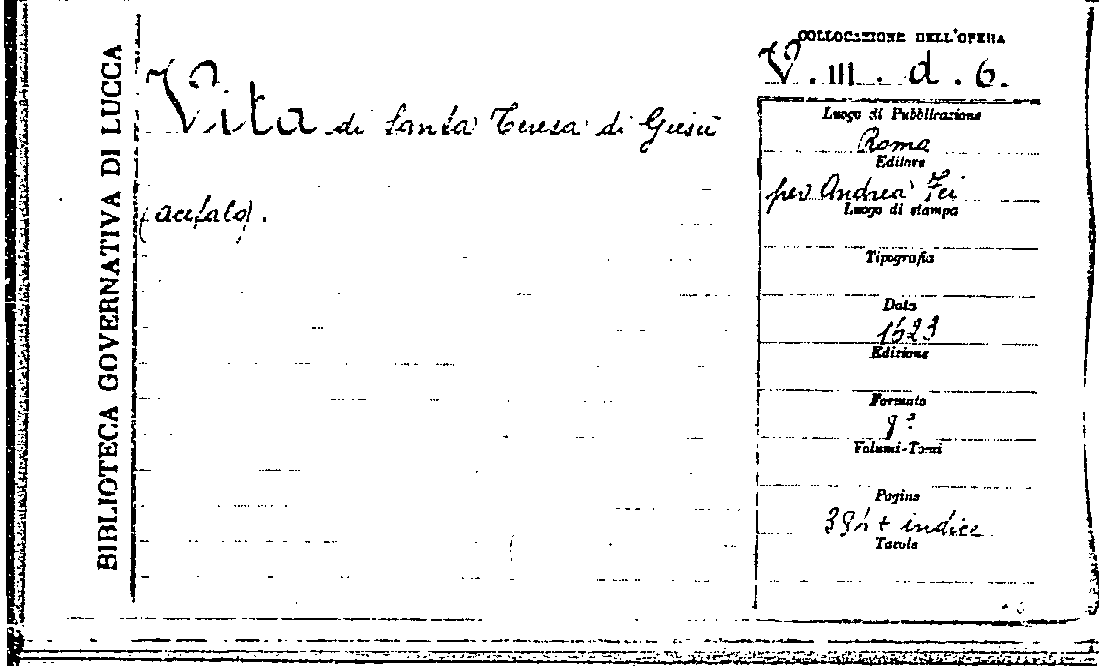 BIBLIOTECA GOVERNATIVA DI LUCCA
Vita di Santa Teresa di Giesù
(acefalo).
COLLOCAZIONE DELL'OPERA
V. III. d. 6.
Luogo di Pubblicazione
Roma
Editore
per Andrea Fei
Luogo di stampa
Tipografia
Data
1623
Edizione
Formato
8°
Volumi-Tomi
Pagine
394 + indice
Tavole